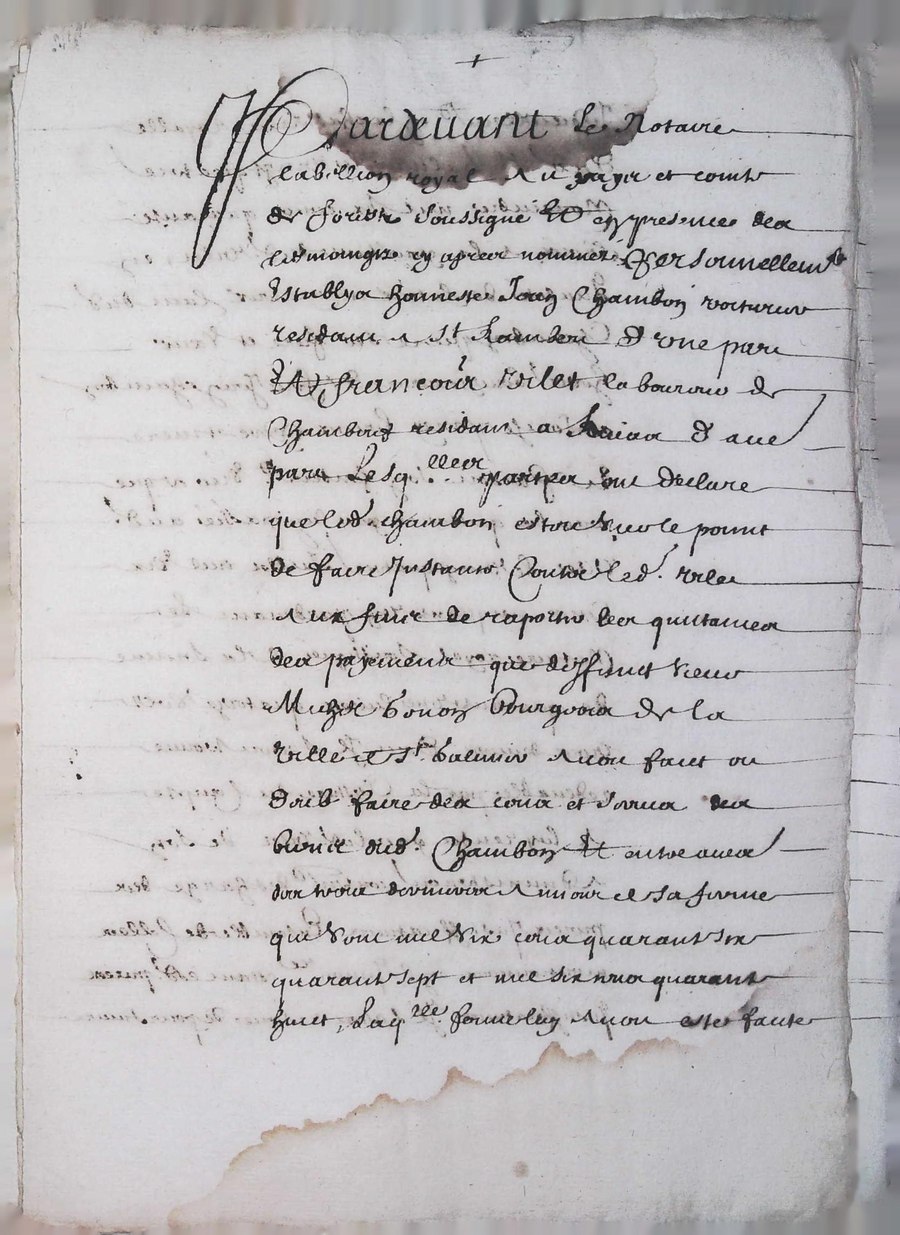 Pardevant Le Notaire
tabellion royal au pays et comte
de forestz soussigne Et en presence des
tesmoingtz cy apres nommez Personnellemt
Establys honneste Jean Chambon voiturier
residant a St Rambert d'une part
Et francois vilet laboureur de
Chambeuf residant a d'aue
part Lesqlles parties ont declare
que led. chambon estoit sur le point
de faire Instance Contre led. vilet
Aux fins de raporter les quitances
des payementz que deffunct sieur
Michel bourgeois de la
ville de St Galmier Avoit faict ou
doib faire des et des
biens dud. Chambon Et entre aues
des trois dernieres Annees de sa ferme
qui sont mil six cens quarante six
quarante sept et mil six cens quarante
huict, Laqlle ferme luy Avoit esté faicte